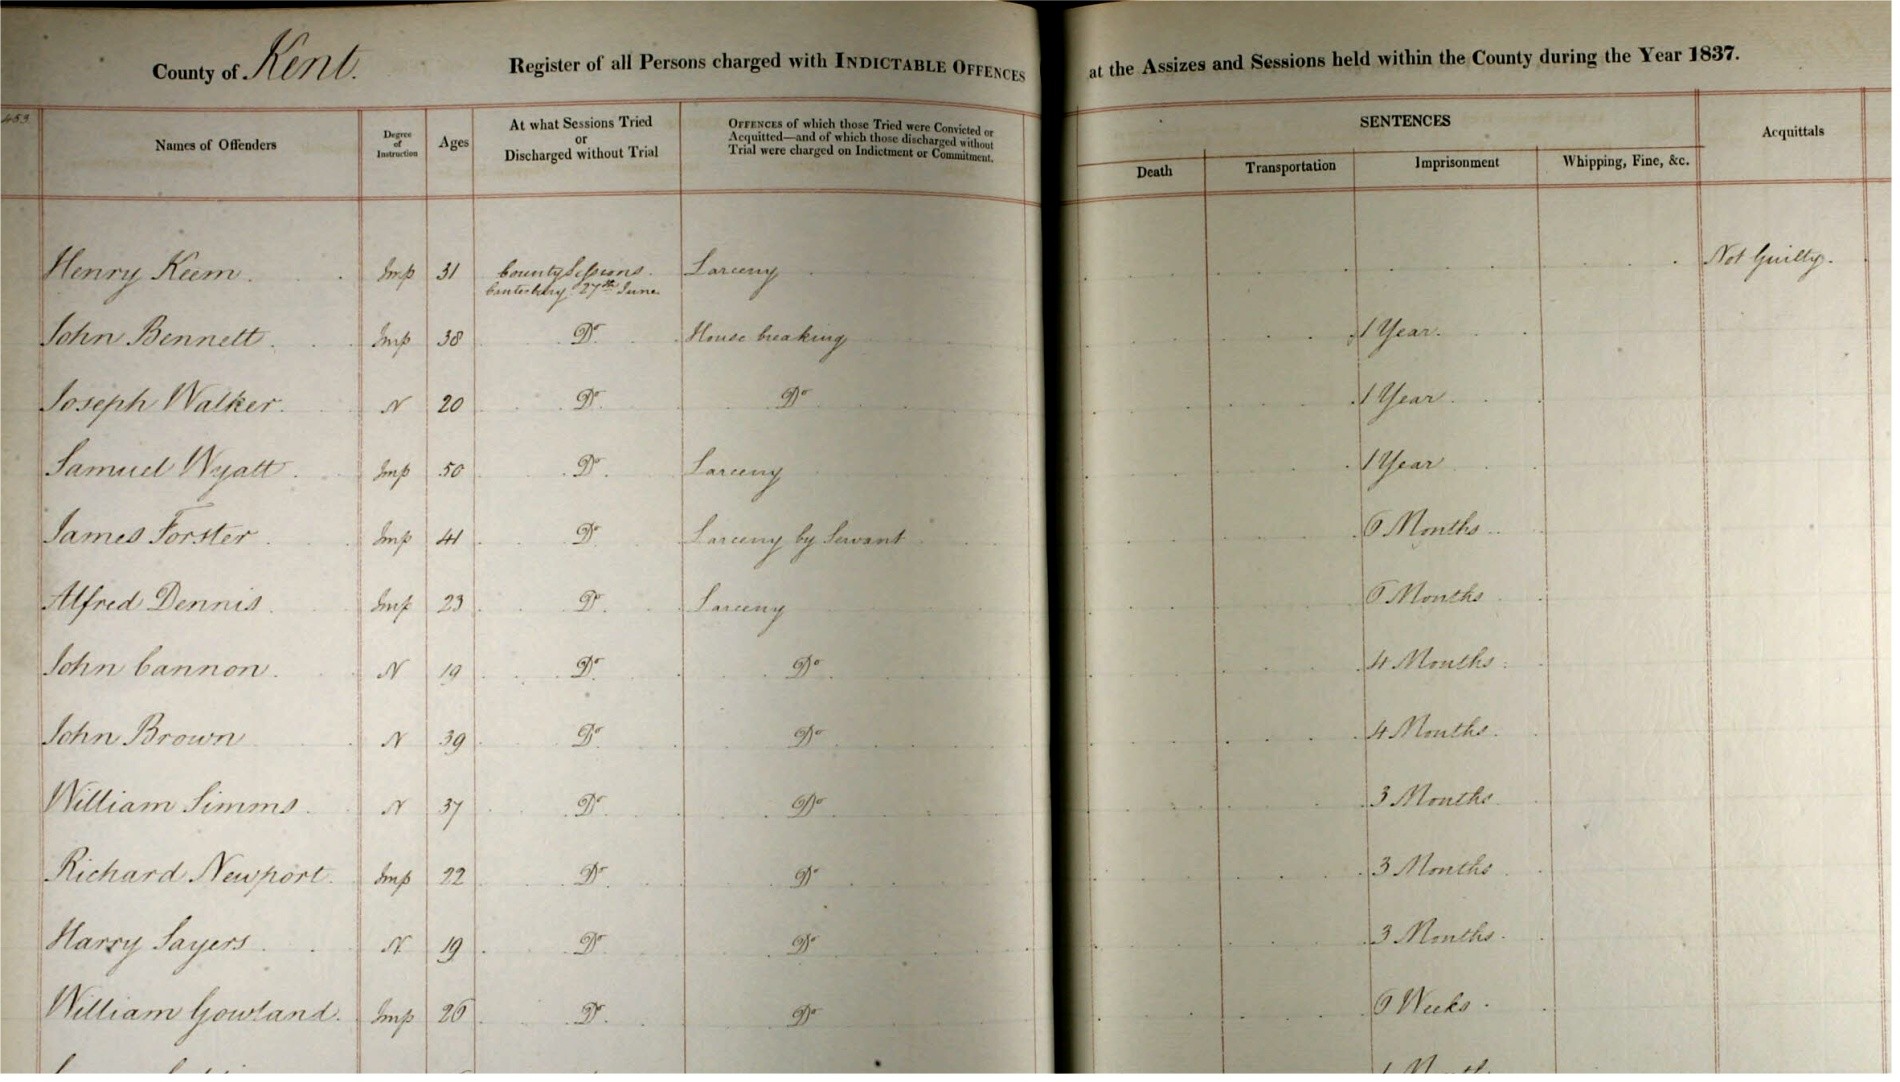 County of Kent. Register of all Persons charged with INDICTABLE OFFENCES at the Assizes and Sessions held within the County during the Year 1837.
Names of Offenders
Degree
of
Instruction
Ages
At what Sessions Tried
or
Discharged without Trial
OFFENCES of which those Tried were Convicted or
Acquitted—and of which those discharged without
Trial were charged on Indictment or Commitment.
SENTENCES
Death Transportation Imprisonment Whipping, Fine, &c.
Acquittals
Henry Keem. Imp 31 County Sessions. Larceny Not Guilty.
Canterbury 27th June
John Bennett. Imp 38 Do House breaking 1 Year.
Joseph Walker. N 20 Do Do 1 Year.
Samuel Wyatt. Imp 50 Do Larceny 1 Year
James Forster Imp 41 Do Larceny by Servant 6 Months
Alfred Dennis Imp 23 Do Larceny 6 Months
John Cannon. N 19 Do Do 4 Months
John Brown N 39 Do Do 4 Months.
William Simms N 37 Do Do 3 Months
Richard Newport. Imp 22 Do Do 3 Months
Harry Sayers N 19 Do Do 3 Months.
William Gowland. Imp 26 Do Do 6 Weeks